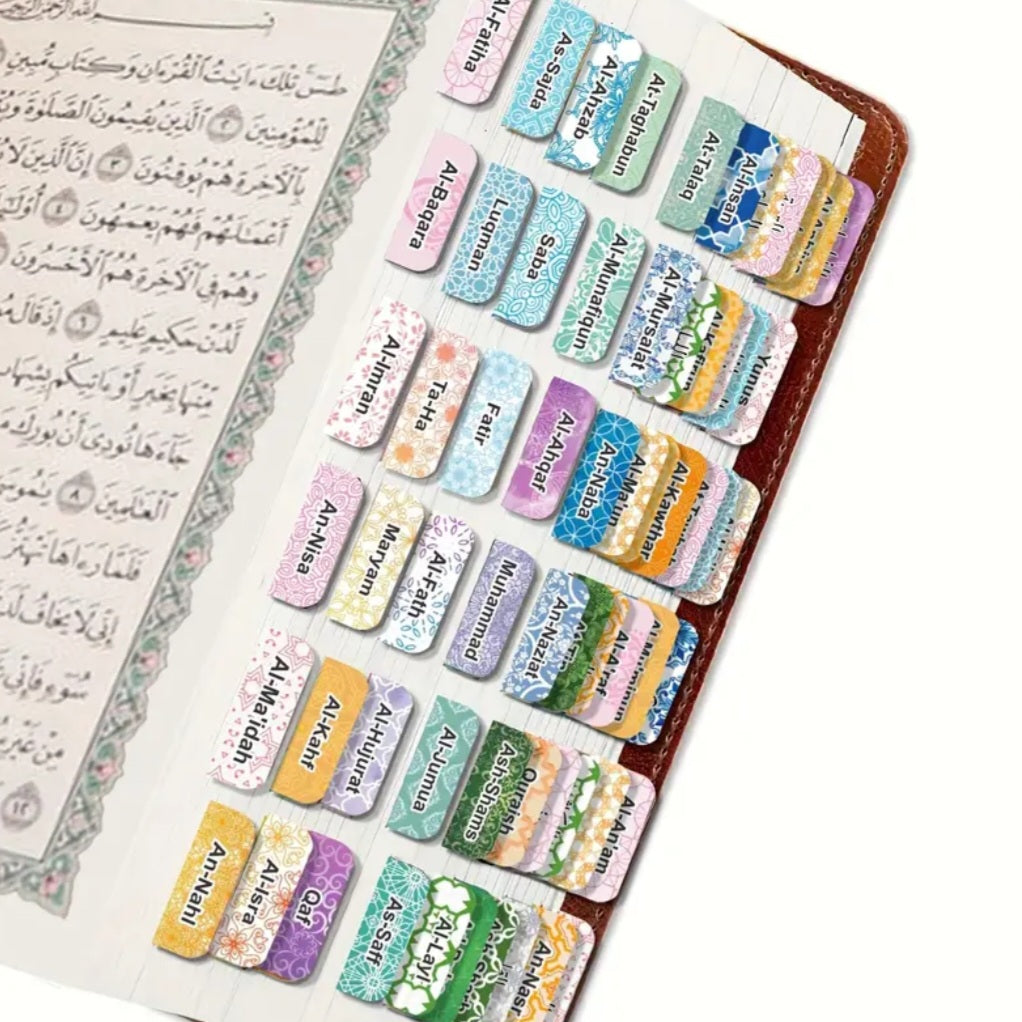 بسم الله الرحمن الرحيم
طسٓ تِلْكَ ءَايَٰتُ ٱلْقُرْءَانِ وَكِتَابٍ مُّبِينٍ
لِلْمُؤْمِنِينَ ٢ ٱلَّذِينَ يُقِيمُونَ ٱلصَّلَوٰةَ
بِٱلْأَخِرَةِ هُمْ يُوقِنُونَ ٣ إِنَّ ٱلَّذِينَ لَا
أَعْمَٰلَهُمْ فَهُمْ يَعْمَهُونَ ٤
وَهُمْ فِى ٱلْأَخِرَةِ هُمُ ٱلْأَخْسَرُونَ
لَّدُنْ حَكِيمٍ عَلِيمٍ ٦ إِذْ قَالَ
مِّنْهَا بِخَبَرٍ أَوْ ءَاتِيكُم بِشِهَابٍ
جَآءَهَا نُودِىَ أَنۢ بُورِكَ
ٱلْعَٰلَمِينَ ٨
فَلَمَّا رَءَاهَا تَهْتَزُّ
إِنِّى لَا يَخَافُ
سُوٓءٍ فَإِنِّى
مِنْ غَيْرِ
١٢
Al-Fatiha
As-Sajda
Al-Ahzab
At-Taghabun
At-Talaq
Al-Insan
Al-Baqara
Luqman
Saba
Al-Munafiqun
Al-Mursalat
Al-Kafirun
Yunus
Al-Imran
Ta-Ha
Fatir
Al-Ahqaf
An-Naba
Al-Ma'un
Al-Kawthar
An-Nisa
Maryam
Al-Fath
Muhammad
An-Naziat
At-Tin
Al-A'raf
Al-Muminun
Al-Ma'idah
Al-Kahf
Al-Hujurat
Al-Jumua
Ash-Shams
Quraish
Al-An'am
An-Nahl
Al-Isra
Qaf
As-Saff
Al-Layl
An-Nasr